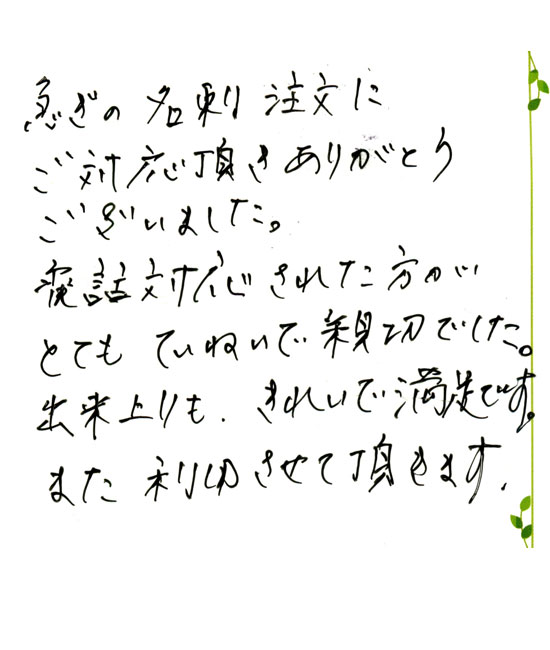 急ぎの名刺注文に
ご対応頂きありがとう
ございました。
電話対応された方が
とてもていねいで親切でした。
出来上りも、きれいで満足です。
また利用させて頂きます。